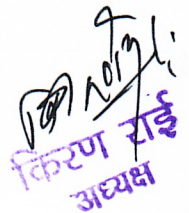 किरण राई
अध्यक्ष